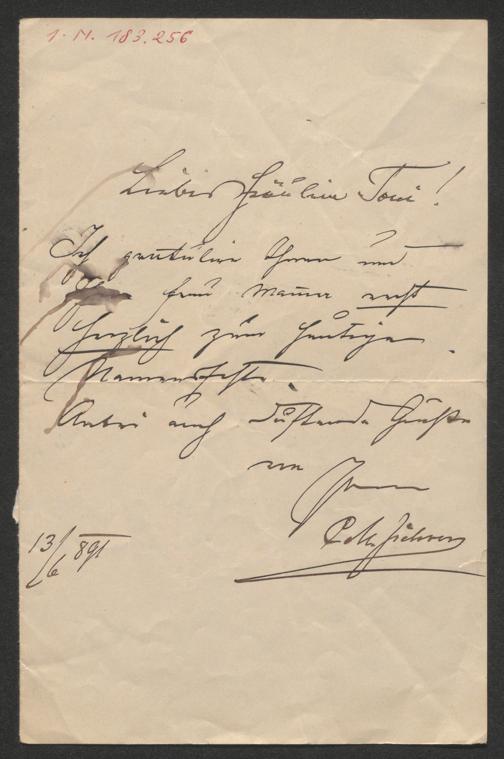 I. N. 183.256
Liebes Fräulein Toni!
Ich gratulire Ihnen und
Frau Mama recht
herzlich zum heutigen
Namensfeste.
Anbei auch duftende Grüße
von Ihrem
C. M. Ziehrer
13/6 891